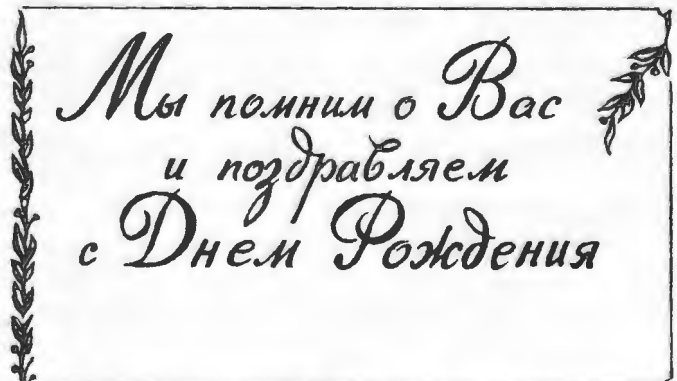 Мы помним о Вас
и поздравляем
с Днем Рождения